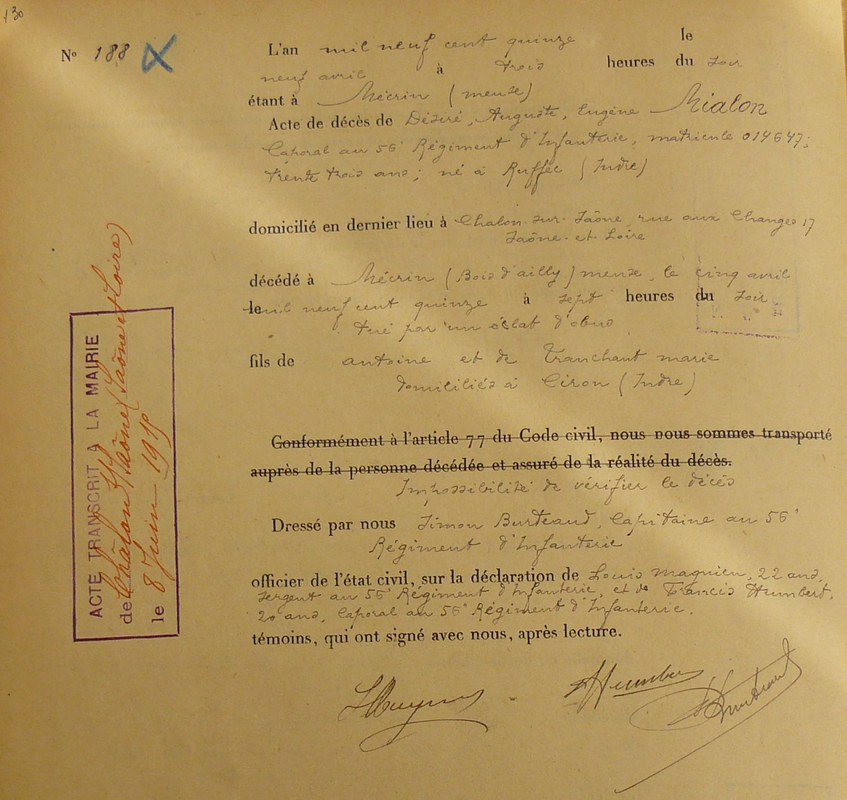 130
N° 188
L'an mil neuf cent quinze le
neuf avril à trois heures du soir
étant à Mécrin (meuse)
Acte de décès de Désiré, Auguste, Eugène Mialon
Caporal au 56e Régiment d'Infanterie, matricule 014647;
trente trois ans; né à Ruffec (Indre)
domicilié en dernier lieu à Chalon-sur-Saône, rue aux Changes 17
Saône-et-Loire
décédé à Mécrin (Bois d'ailly) meuse, le cinq avril
le mil neuf cent quinze à sept heures du soir
tué par un éclat d'obus
fils de antoine et de Tranchant marie
domiciliés à Ciron (Indre)
Conformément à l'article 77 du Code civil, nous nous sommes transporté
auprès de la personne décédée et assuré de la réalité du décès.
Impossibilité de vérifier le décès
Dressé par nous Simon Burteaud, Capitaine au 56e
Régiment d'Infanterie
officier de l'état civil, sur la déclaration de Louis Magnien, 22 ans,
sergent au 56e Régiment d'Infanterie, et de Francis Humbert,
20 ans, Caporal au 56e Régiment d'Infanterie.
témoins, qui ont signé avec nous, après lecture.
Humbert
Burteaud
ACTE TRANSCRIT A LA MAIRIE
de Chalon s/Saône (Saône et Loire)
le 8 Juin 1915